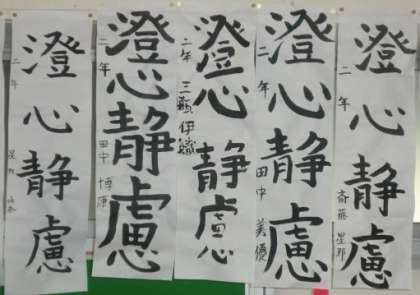 澄心静慮
二年 斎藤 星那
澄心静慮
二年 田中 美優
澄心静慮
二年 三瓶 伊織
澄心静慮
二年 田中 博康
澄心静慮
二年